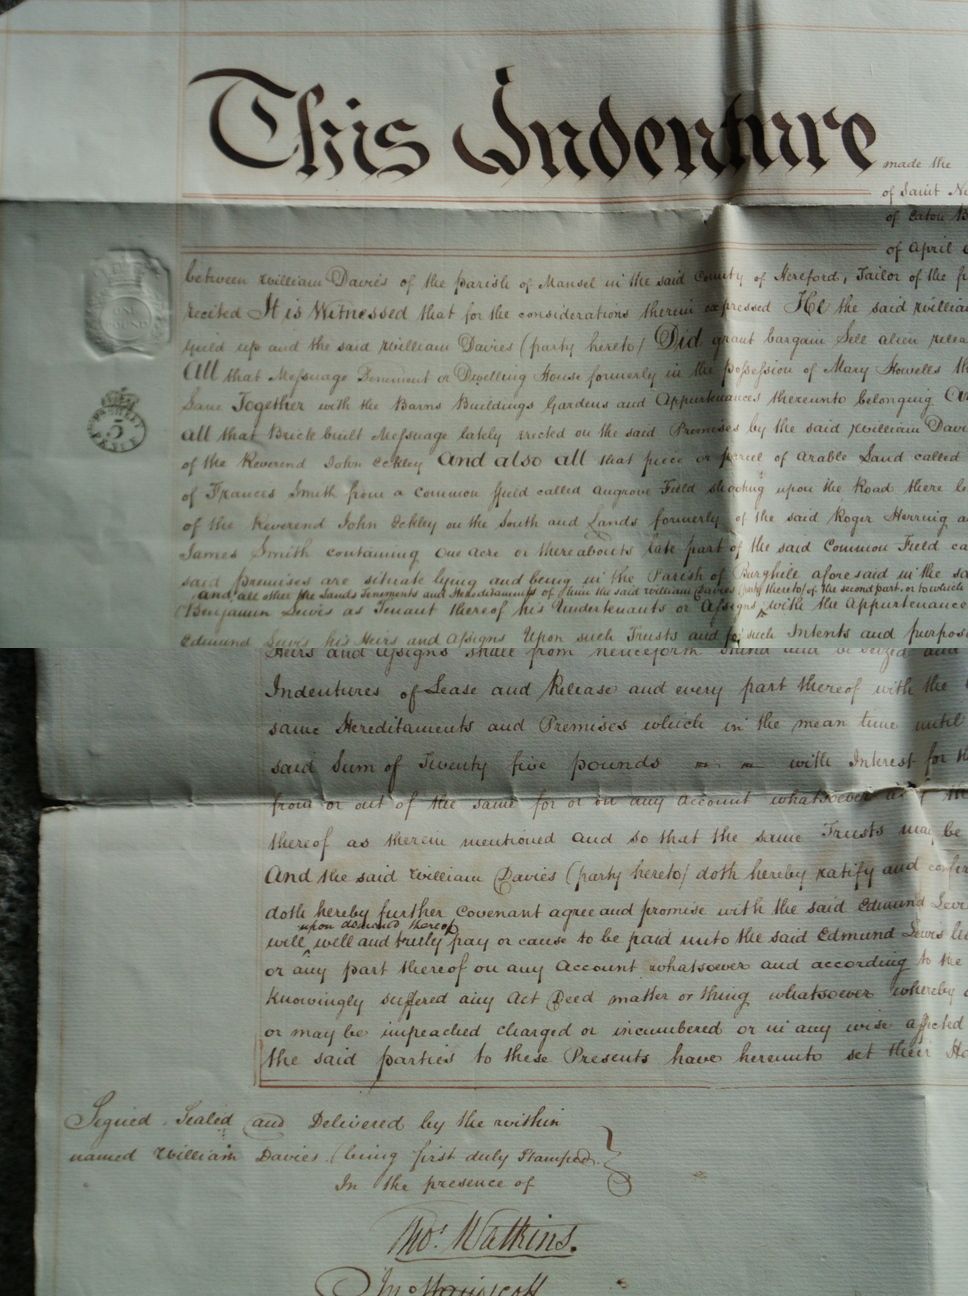 This Indenture made the
of Saint
of Eaton
of April
between William Davies of the parish of Mansel in the said County of Hereford, Tailor of the
recited It is Witnessed that for the considerations therein expressed He the said William
yield up and the said William Davies (party hereto) Did grant bargain Sell alien
All that Messuage Tenement or Dwelling House formerly in the possession of Mary Howells
Lane Together with the Barns Buildings Gardens and Appurtenances thereunto belonging
all that Brick built Messuage lately erected on the said Premises by the said William
of the Reverend John Eckley And also all that piece or parcel of arable Land called
of Francis Smith from a Common Field called Field shooting upon the Road there
of the Reverend John Eckley on the South and Lands formerly of the said Roger
James Smith containing One Acre or thereabouts late part of the said Common Field
said premises are situate lying and being in the Parish of Burghill aforesaid in the
and all other the Lands Tenements and Hereditaments of him the said William Davies (party hereto) of the second part, or to which
Benjamin Lewis as Tenant thereof his Undertenants or Assigns with the Appurtenance
Edmund Lewis his Heirs and Assigns Upon such Trusts and for such Intents and
Heirs and Assigns shall from henceforth stand and be seized and
Indentures of Lease and Release and every part thereof with the
same Hereditaments and Premises which in the mean time until
said Sum of Twenty five pounds with Interest for
from or out of the same for or on any Account whatsoever
thereof as therein mentioned and so that the same Trusts may be
And the said William Davies (party hereto) doth hereby ratify and
doth hereby further Covenant agree and promise with the said Edmund
upon demand thereof
will well and truly pay or cause to be paid unto the said Edmund Lewis
or any part thereof on any Account whatsoever and according to the
knowingly suffered any Act Deed matter or thing whatsoever whereby
or may be impeached charged or incumbered or in any wise affected
the said parties to these Presents have hereunto set their
Signed Sealed and Delivered by the within
named William Davies (being first duly Stamped)
In the presence of
Thos. Watkins.